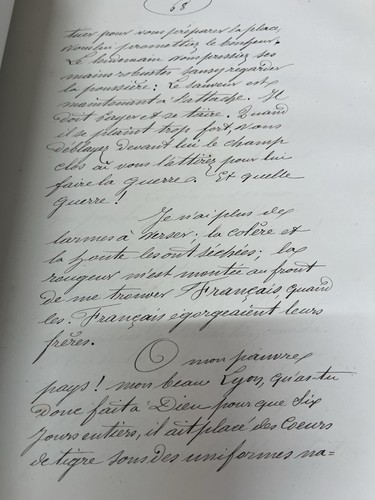 68
tuer pour vous préparer la place,
vous lui promettiez le bonheur.
Le lendemain vous pressiez ses
mains robustes sans y regarder
la poussière; Le sauveur est
maintenant à l'attache. Il
doit payer et se taire. Quand
il se plaint trop fort, vous
déblayez devant lui le champ
clos où vous l'attirez pour lui
faire la guerre. Et quelle
guerre!
Je n'ai plus de
larmes à verser; la colère et
la honte les ont séchées; la
rougeur m'est montée au front
de me trouver Français, quand
les Français égorgeaient leurs
frères.
O mon pauvre
pays! mon beau Lyon, qu'as-tu
donc fait à Dieu pour que six
jours entiers, il ait placé des coeurs
de tigre sous des uniformes na=